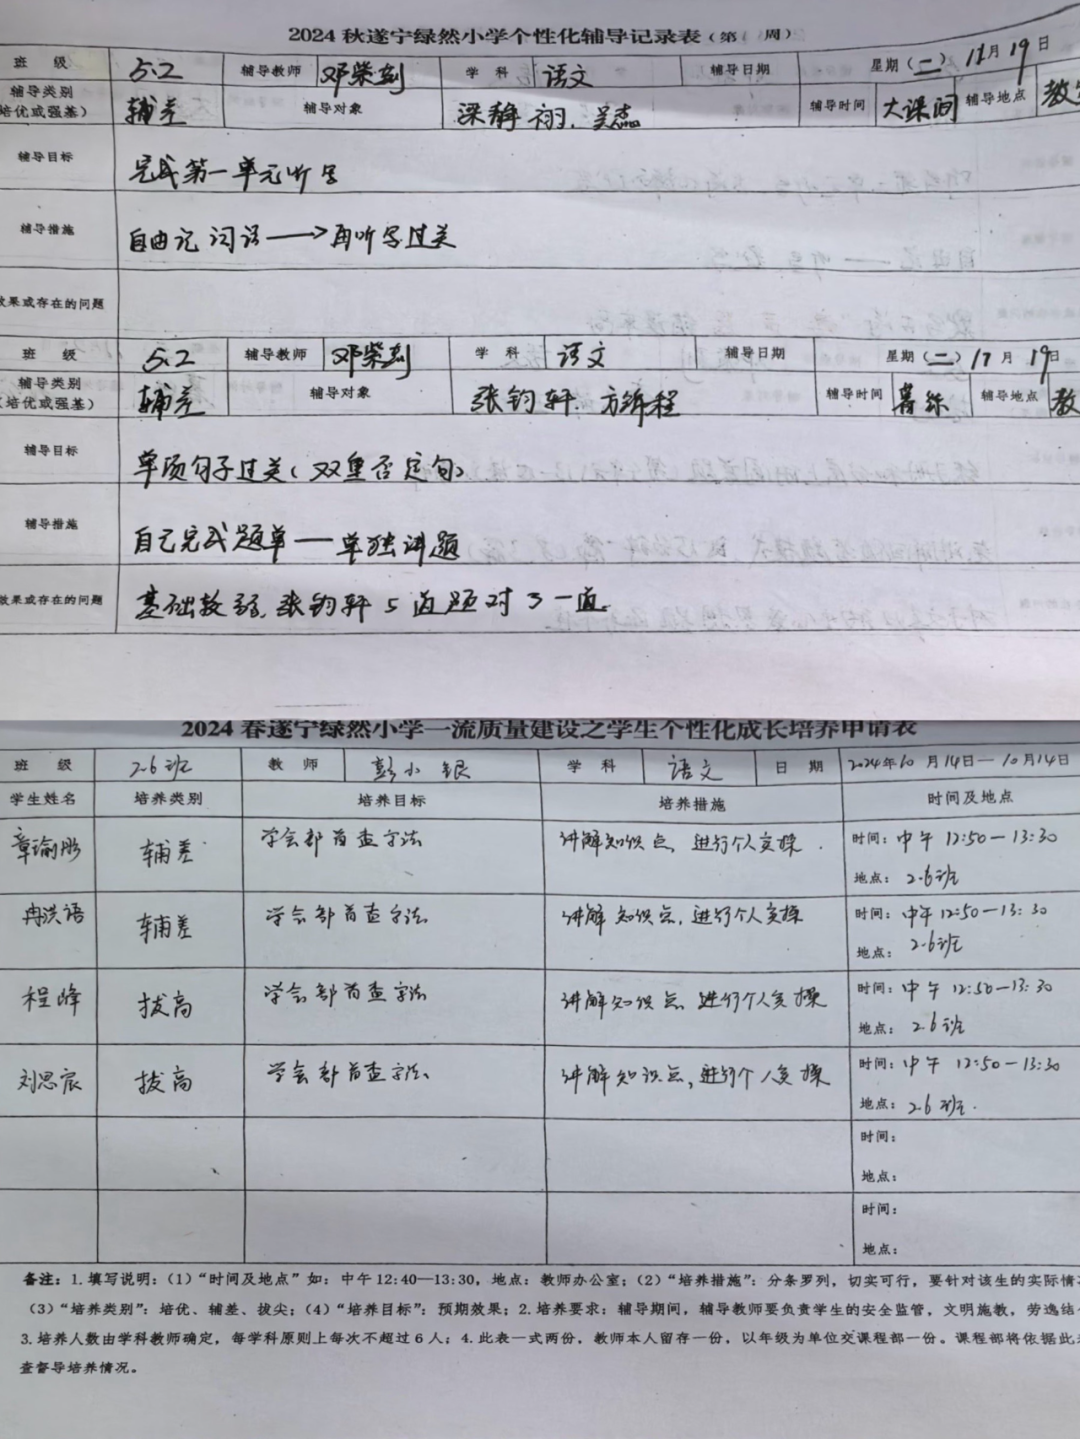 2024 秋遂宁绿然小学个性化辅导记录表（第 周）
班 级 5.2 辅导教师 学 科 语文 辅导日期 星期（二）11月19日
辅导类别 培优或强基） 辅差 辅导对象 梁静 辅导时间 大课间 辅导地点
辅导目标 完成第一单元听写
辅导措施 自由记词语——>再听写过关
效果或存在的问题
班 级 5.2 辅导教师 学 科 语文 辅导日期 星期（二）11月19日
辅导类别 （培优或强基） 辅差 辅导对象 张钧轩. 方锦程 辅导时间 暮练 辅导地点 教
辅导目标 单项句子过关（双重否定句）
辅导措施 自己完成题单——单独讲题
效果或存在的问题 基础较弱,张钧轩5道题对了一道.
2024 春遂宁绿然小学一流质量建设之学生个性化成长培养申请表
班 级 2.6班 教 师 彭小银 学 科 语文 日 期 2024年10月14日—10月14日
学生姓名 培养类别 培养目标 培养措施 时间及地点
章瑜彤 辅差 学会部首查字法 讲解知识点，进行个人实操. 时间：中午 12:50—13:30
地点：2.6班
冉洪语 辅差 学会部首查字法 讲解知识点，进行个人实操 时间：中午12:50—13:30
地点：2.6班
程峰 拔高 学会部首查字法 讲解知识点，进行个人实操 时间：中午 12:50—13:30
地点：2.6班
刘思宸 拔高 学会部首查字法 讲解知识点，进行个人实操 时间：中午 12:50—13:30
地点：2.6班.
时间：
地点：
时间：
地点：
备注：1.填写说明：（1）“时间及地点”如：中午12:40—13:30，地点：教师办公室；（2）“培养措施”：分条罗列，切实可行，要针对该生的实际情
（3）“培养类别”：培优、辅差、拔尖；（4）“培养目标”：预期效果；2.培养要求：辅导期间，辅导教师要负责学生的安全监管，文明施教，劳逸结
3.培养人数由学科教师确定，每学科原则上每次不超过6人；4.此表一式两份，教师本人留存一份，以年级为单位交课程部一份。课程部将依据此
查督导培养情况。